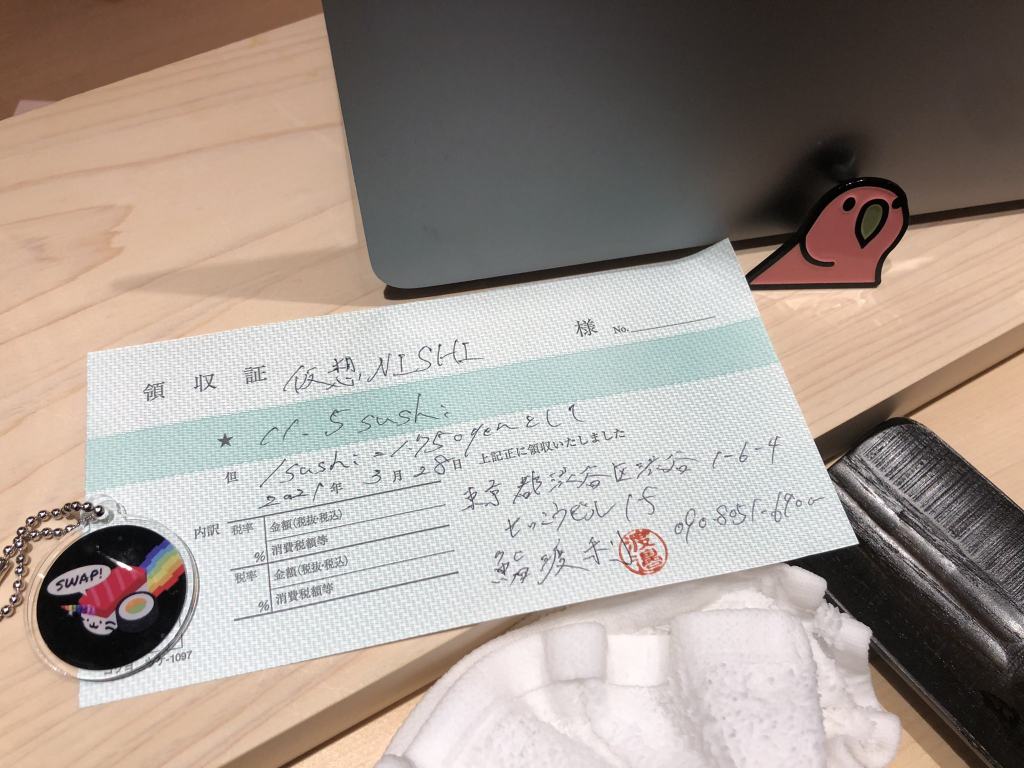 領収証 仮想NISHI 様 No.
★ 11.5 sushi
但 1sushi=1750yenとして
2021年 3月 28日 上記正に領収いたしました
内訳 税率 金額(税抜・税込)
% 消費税額等
税率 金額(税抜・税込)
% 消費税額等
東京都渋谷区渋谷 1-6-4
ビル 1F
鮨渡利
SWAP!
-1097